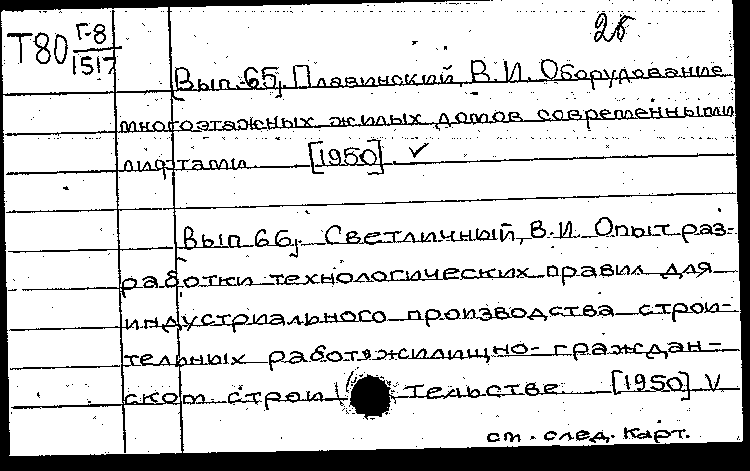 2б
Т80 Г-8/1517
Вып. 65, Плавинский, В.И. Оборудование
многоэтажных жилых домов современными
лифтами [1950] ✓
Вып 66, Светличный, В.И. Опыт раз-
работки технологических правил для
индустриального производства строи-
тельных работ в жилищно-граждан-
ском строительстве. [1950] V
см. след. карт.